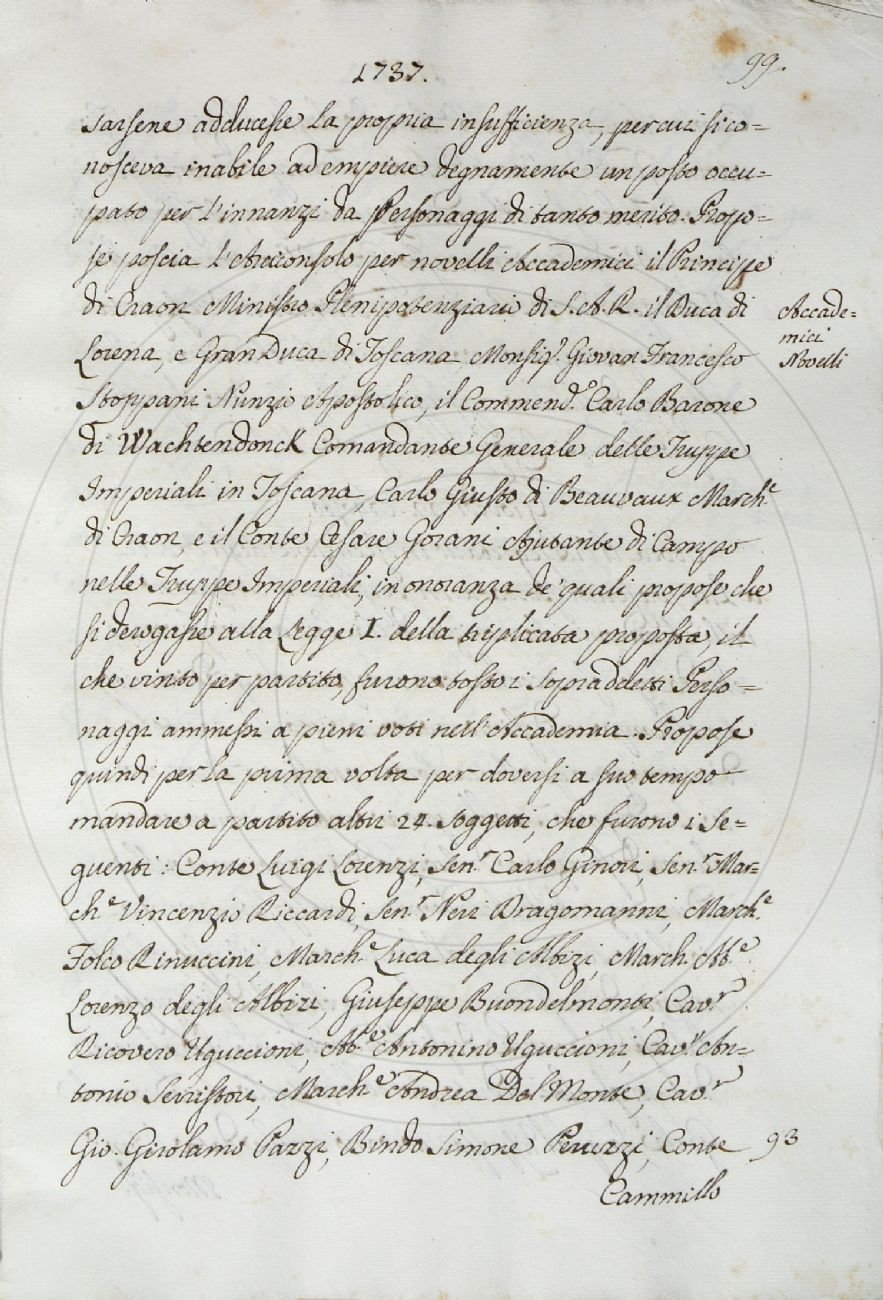 1737.
99.
sarsene adducesse la propria insufficienza, per cui si co=
nosceva inabile ad empiere degnamente un posto occu=
pato per l'innanzi da Personaggi di tanto merito. Propo=
se poscia l'Arciconsolo per novelli Accademici il Principe
di Craon Ministro Plenipotenziario di S. A. R. il Duca di
Lorena, e Gran Duca di Toscana Monsig.r Giovan Francesco
Stoppani Nunzio Apostolico, il Commend.e Carlo Barone
di Wachtendonck Comandante Generale delle Truppe
Imperiali in Toscana, Carlo Giusto di Beauvaux March.e
di Craon, e il Conte Cesare Gorani Ajutante di Campo
nelle Truppe Imperiali, in onoranza de' quali propose che
si derogasse alla Legge I. della triplicata proposta, il
che vinto per partito, furono tosto i sopraddetti Perso=
naggi ammessi a pieni voti nell'Accademia. Propose
quindi per la prima volta per doversi a suo tempo
mandare a partito altri 24. Soggetti, che furono i Se=
guenti: Conte Luigi Lorenzi, Sen.r Carlo Ginori, Sen.r Mar=
ch.e Vincenzio Riccardi, Sen.r Neri Dragomanni, March.e
Folco Rinuccini, March.e Luca degli Albizi, March. Ab.e
Lorenzo degli Albizi, Giuseppe Buondelmonti, Cav.r
Ricovero Uguccioni, Ab.e Antonino Uguccioni, Cav.r An=
tonio Serristori, March.e Andrea Del Monte, Cav.r
Gio. Girolamo Pazzi, Bindo Simone Peruzzi, Conte
Cammillo
Accade=
mici
Novelli
93